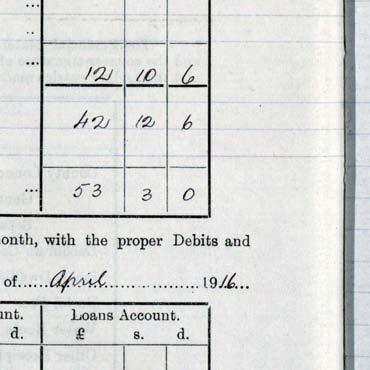 ... 12 10 6
42 12 6
... 53 3 0
onth, with the proper Debits and
of......April..................1916...
nt. Loans Account.
d. £ s. d.